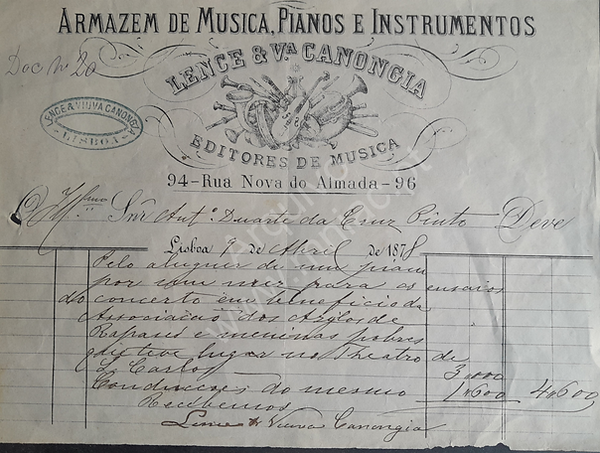 ARMAZEM DE MUSICA, PIANOS E INSTRUMENTOS
Doc Nº 20
LENCE & V.A CANONGIA
LENCE & VIUVA CANONGIA
LISBOA
EDITORES DE MUSICA
94-Rua Nova do Almada-96
O Illmo Snr Antº Duarte da Cruz Pinto Deve
Lisboa 9 de Abril de 1878
Pelo aluguer de um piano
por um mez para os ensaios
do concerto em beneficio da
Associação dos Asylos de
Rapazes e meninas pobres
que teve lugar no Theatro de
S. Carlos 3,000
Conducções do mesmo 1,600 4,600
Recebemos
Lence & Viuva Canongia